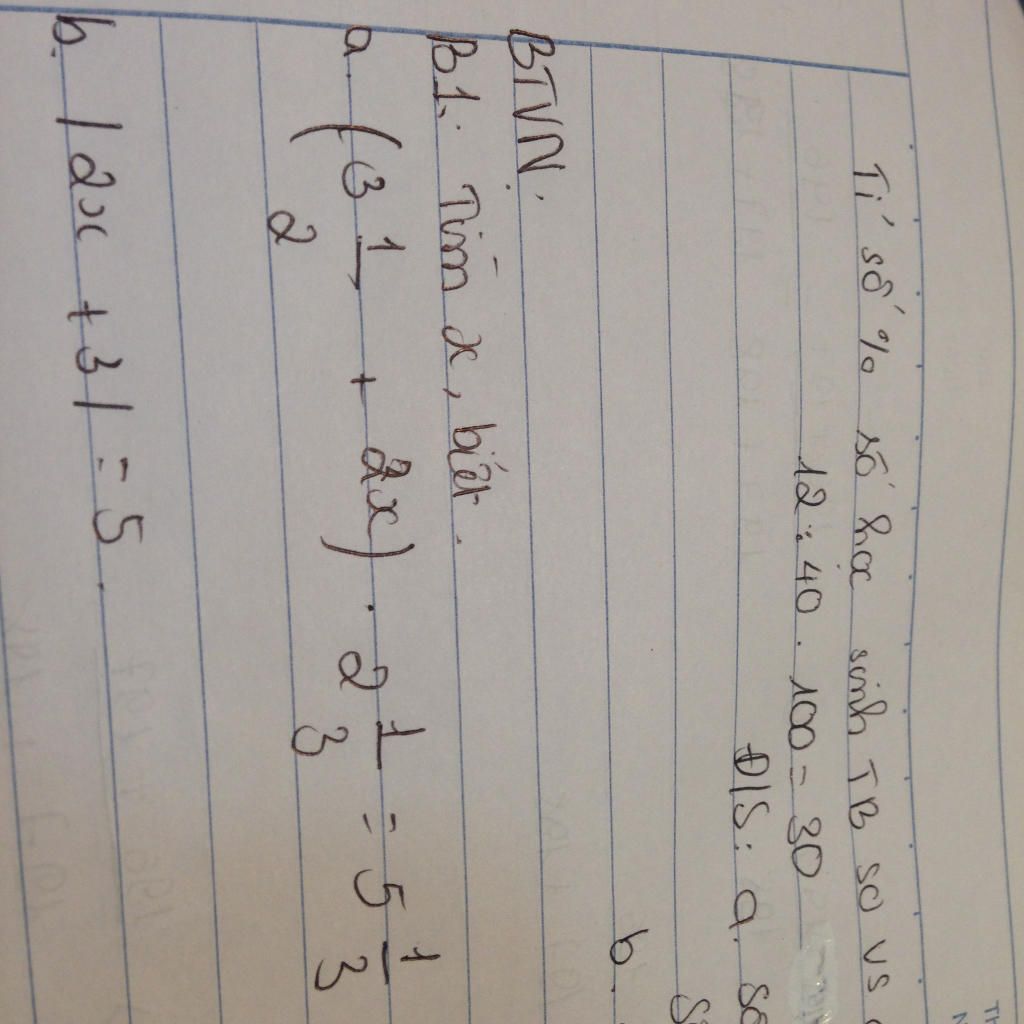 Tỉ số % số học sinh TB so vs
12 : 40 . 100 = 30
Đ/S: a. số
b.
BTVN.
B.1: Tìm x, biết.
a. (3 1/2 + 2x) . 2 1/3 = 5 1/3
b. |2x + 3| = 5.